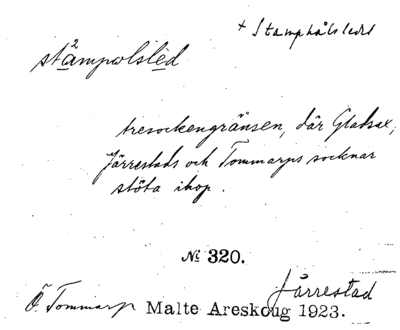 + Stamphålsledet
stämpolsled
tresockengränsen, där Gladsax,
Järrestads och Tommarps socknar
stöta ihop.
№ 320.
Järrestad
Ö. Tommarp Malte Areskoug 1923.